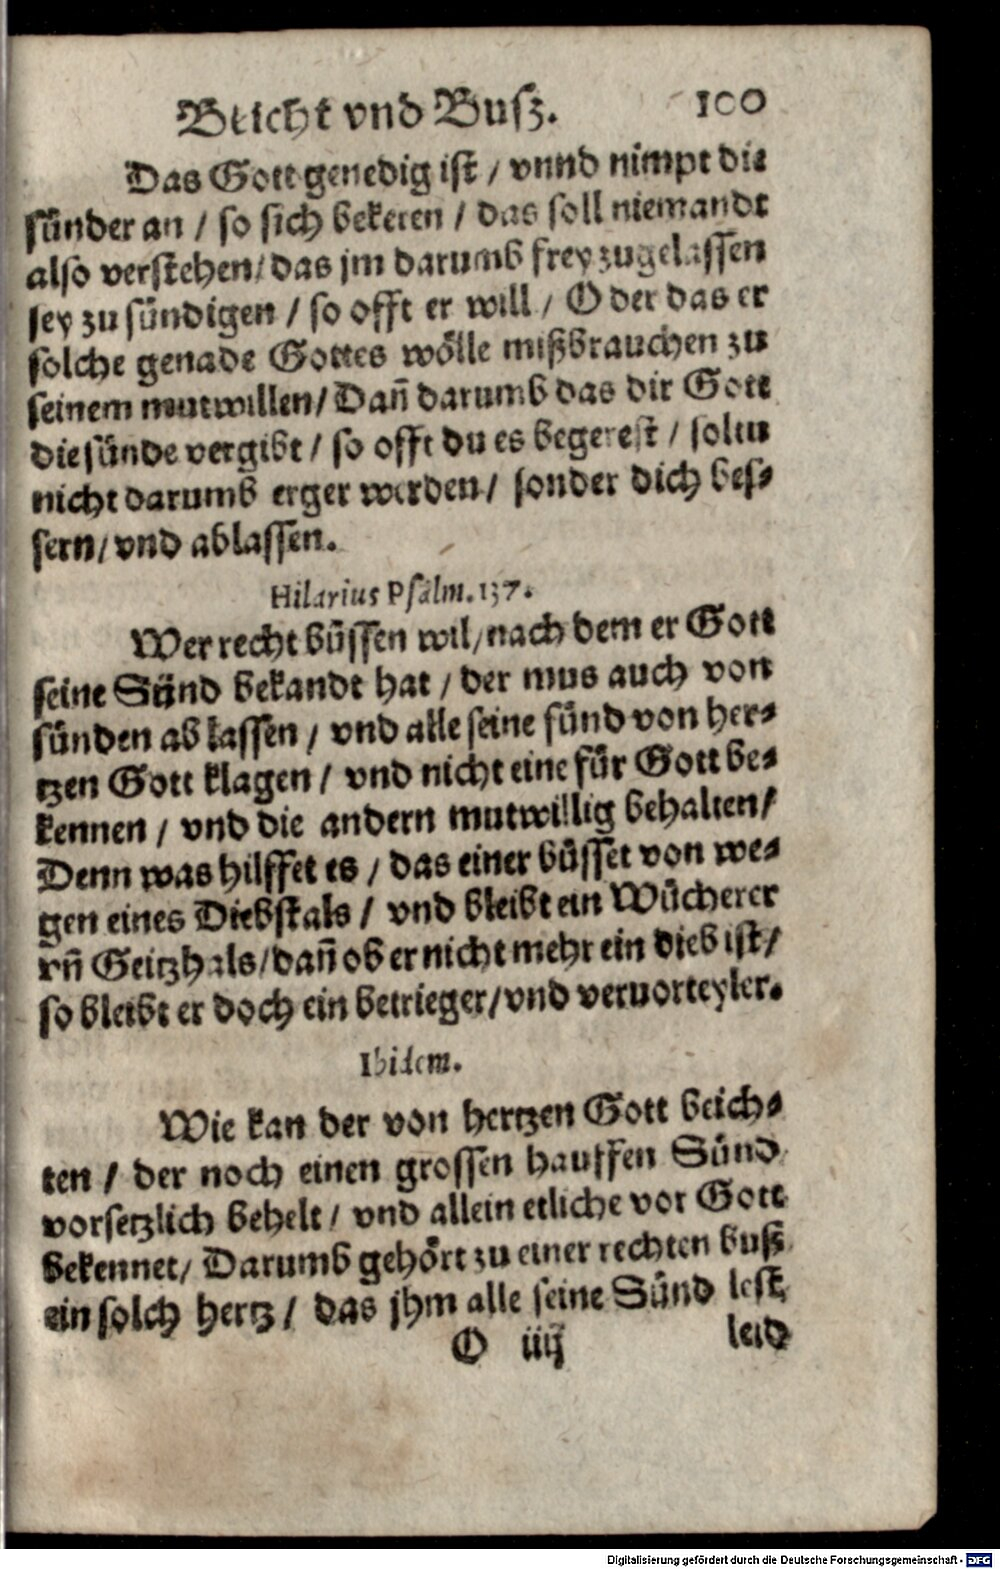 Beicht vnd Busz. 100
Das Gott genedig ist / vnnd nimpt die
sünder an / so sich bekeren / das soll niemandt
also verstehen / das jm darumb frey zugelassen
sey zu sündigen / so offt er will / Oder das er
solche genade Gottes wölle mißbrauchen zu
seinem mutwillen / Dañ darumb das dir Gott
die sünde vergibt / so offt du es begerest / soltu
nicht darumb erger werden / sonder dich bes⸗
sern / vnd ablassen.
Hilarius Psalm. 137.
Wer recht büssen wil / nach dem er Gott
seine Sünd bekandt hat / der mus auch von
sünden ablassen / vnd alle seine sünd von her⸗
tzen Gott klagen / vnd nicht eine für Gott be⸗
kennen / vnd die andern mutwillig behalten /
Denn was hilffet es / das einer büsset von we⸗
gen eines Diebstals / vnd bleibt ein Wücherer
vñ Geitzhals / dañ ob er nicht mehr ein dieb ist /
so bleibt er doch ein betrieger / vnd veruorteyler.
Ibidem.
Wie kan der von hertzen Gott beich⸗
ten / der noch einen grossen hauffen Sünd
vorsetzlich behelt / vnd allein etliche vor Gott
bekennet / Darumb gehört zu einer rechten buß
ein solch hertz / das jhm alle seine Sünd lest
O iiij leid
Digitalisierung gefördert durch die Deutsche Forschungsgemeinschaft - DFG